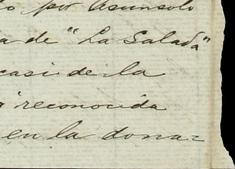 por Asunsolo
a de "La Salada"
casi de la
reconocida
en la dona=